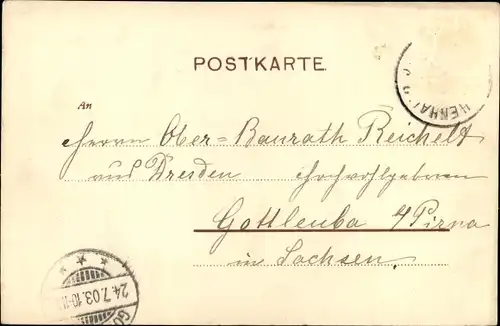 POSTKARTE
HENHA
An
Herrn Ober-Baurath Reichelt
aus Dresden Hochwohlgeboren
Gottleuba a/Pirna
in Sachsen.
24.7.03.10-11
GO